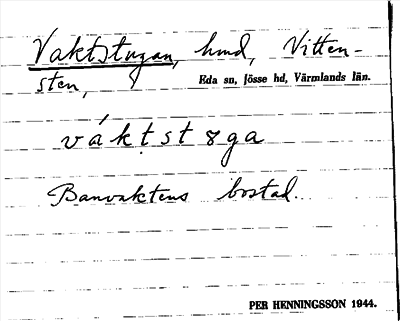 Vaktstugan, hmd, Vitten-
sten, Eda sn, Jösse hd, Värmlands län.
váktstꝏga
Banvaktens bostad.
PER HENNINGSSON 1944.